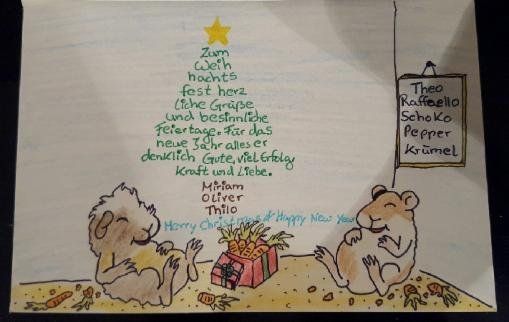 Zum
Weih
nachts
fest herz
liche Grüße
und besinnliche
Feiertage. Für das
neue Jahr alles er
denklich Gute, viel Erfolg
Kraft und Liebe.
Miriam
Oliver
Thilo
Merry Christmas & Happy New Year
Theo
Raffaello
Schoko
Pepper
Krümel